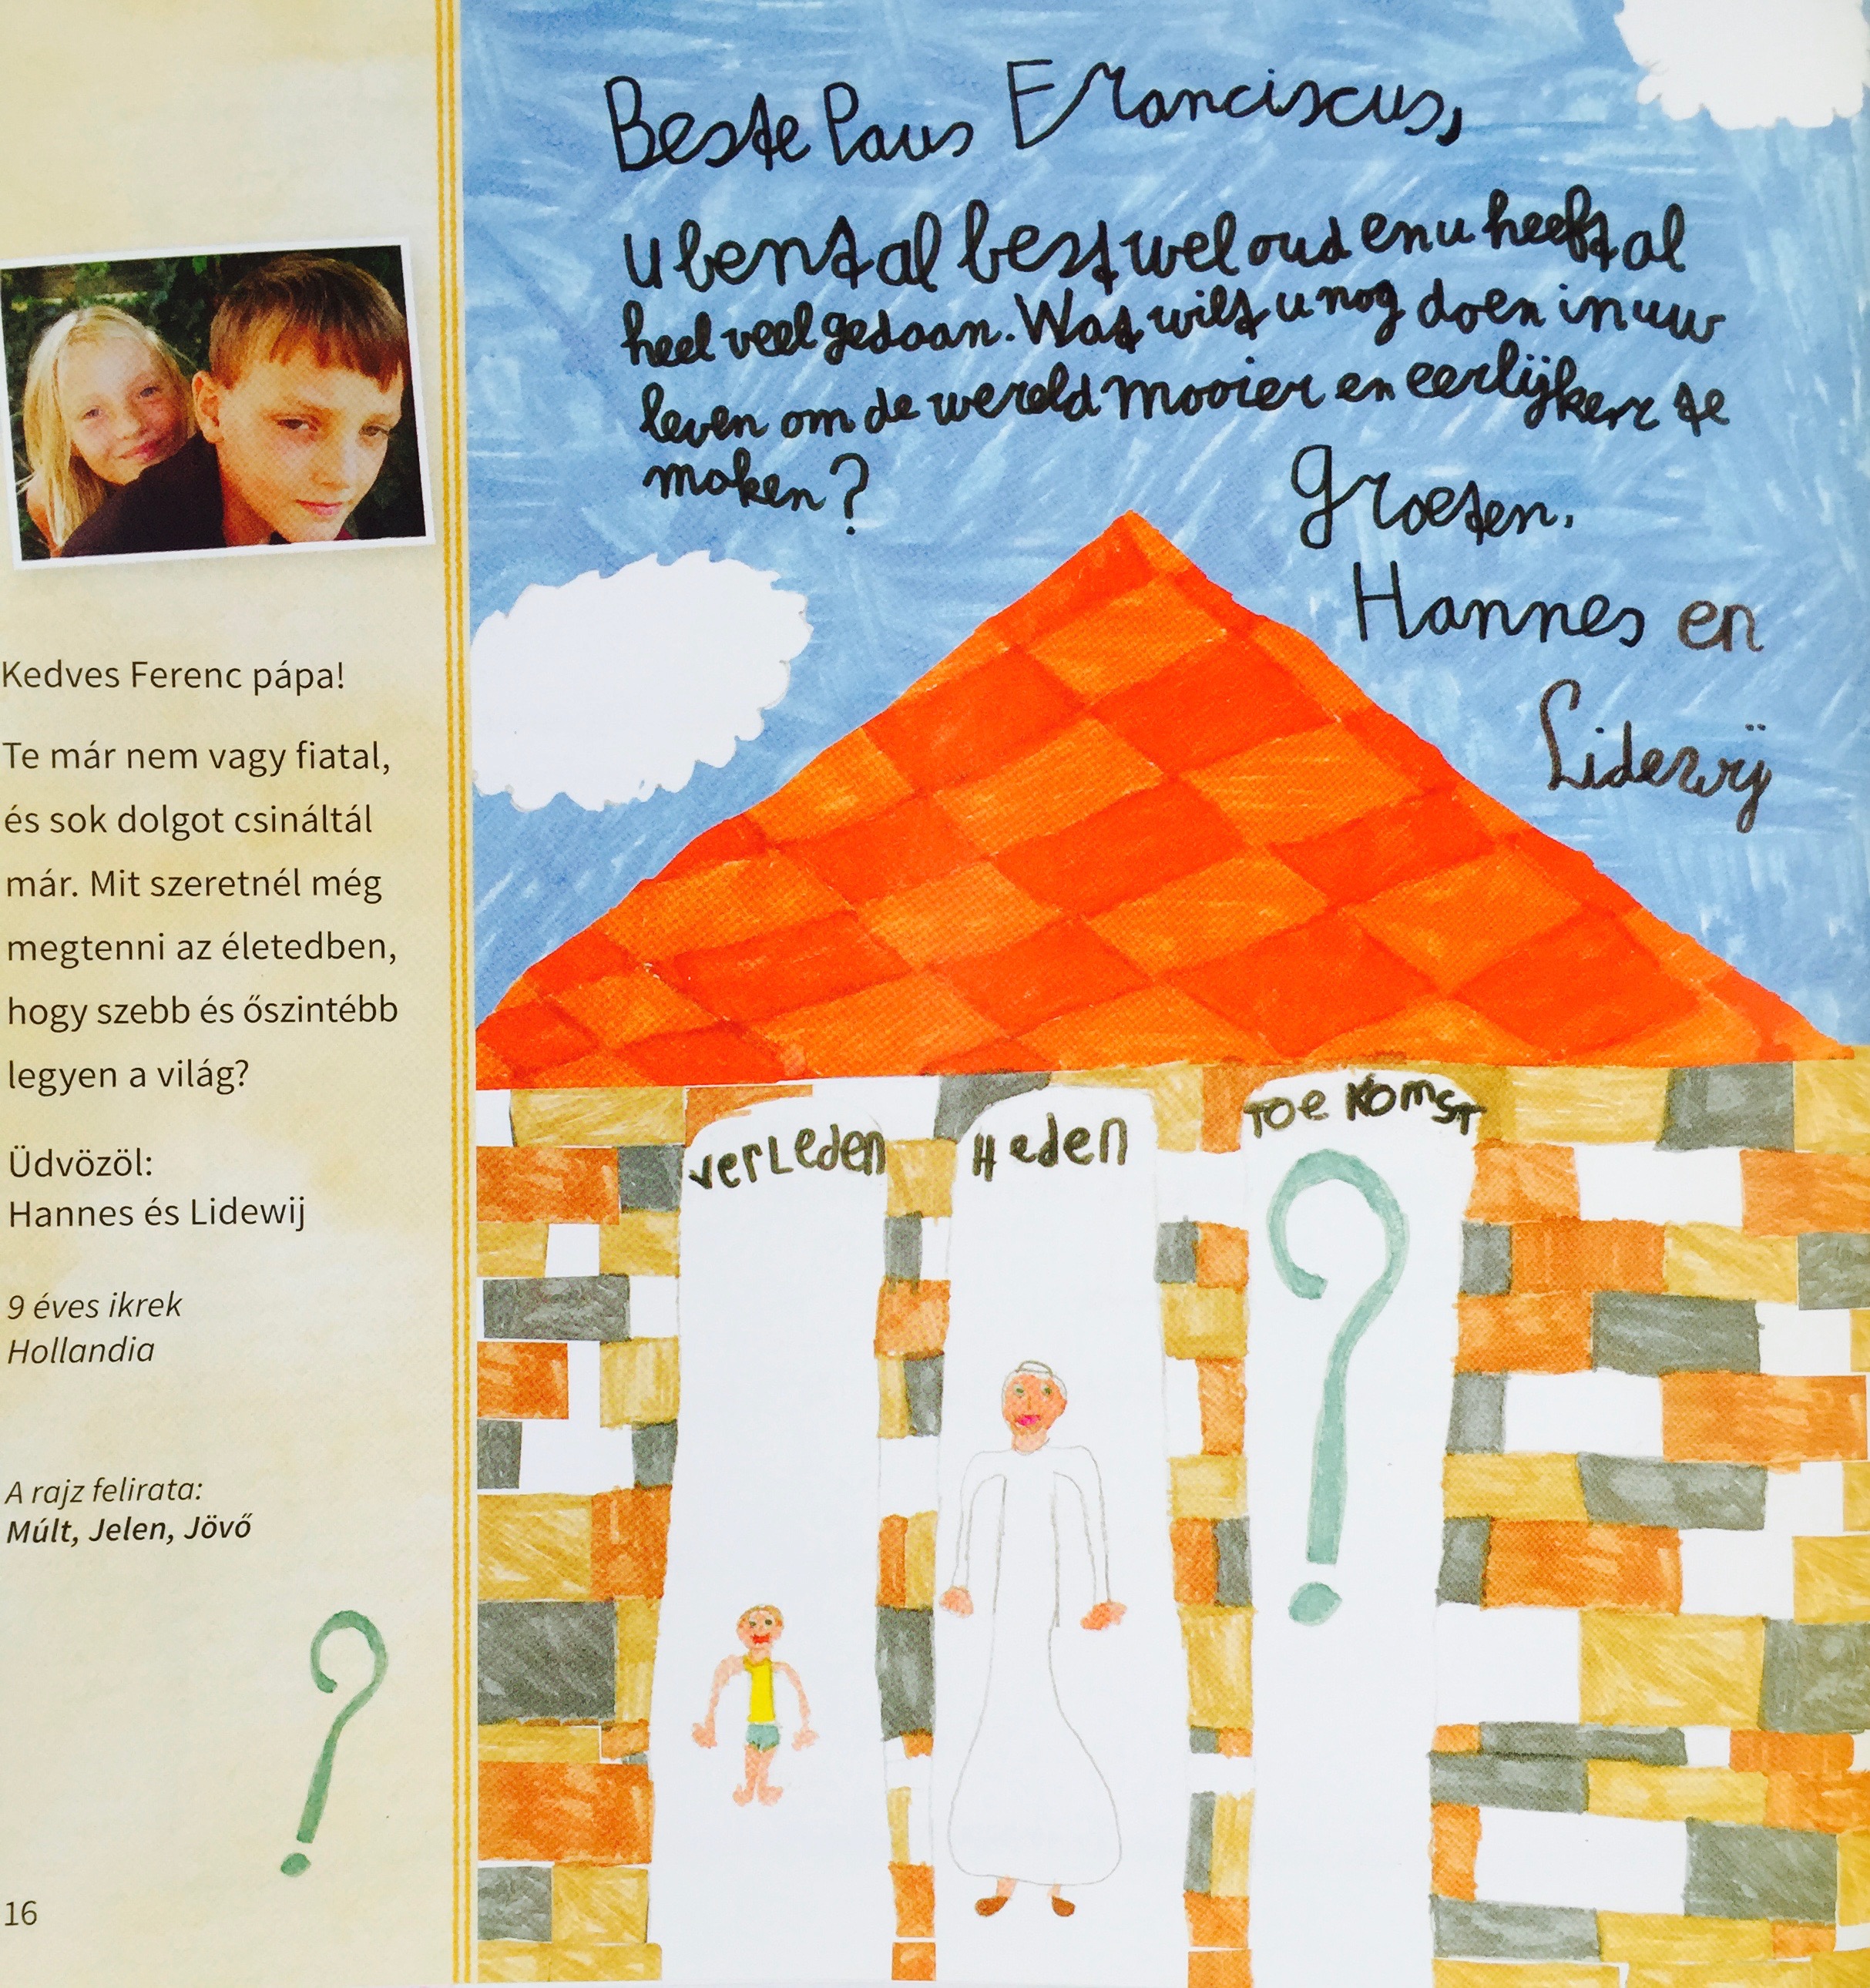 Kedves Ferenc pápa!
Te már nem vagy fiatal,
és sok dolgot csináltál
már. Mit szeretnél még
megtenni az életedben,
hogy szebb és őszintébb
legyen a világ?
Üdvözöl:
Hannes és Lidewij
9 éves ikrek
Hollandia
A rajz felirata:
Múlt, Jelen, Jövő
?
16
Beste Paus Franciscus,
u bent al best wel oud en u heeft al
heel veel gedaan. Wat wilt u nog doen in uw
leven om de wereld mooier en eerlijker te
maken?
Groeten,
Hannes en
Lidewij
verLeden
Heden
Toe Komst
?